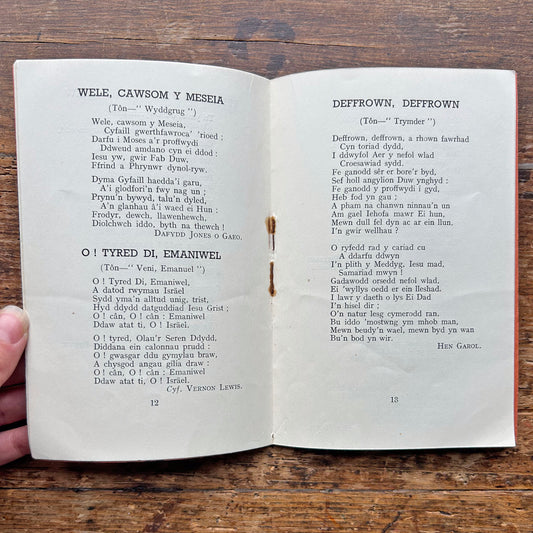 WELE, CAWSOM Y MESEIA
(Tôn—" Wyddgrug ")
Wele, cawsom y Meseia,
Cyfaill gwerthfawroca' 'rioed :
Darfu i Moses a'r proffwydi
Ddweud amdano cyn ei ddod :
Iesu yw, gwir Fab Duw,
Ffrind a Phrynwr dynol-ryw.
Dyma Gyfaill haedda'i garu,
A'i glodfori'n fwy nag un ;
Prynu'n bywyd, talu'n dyled,
A'n glanhau â'i waed ei Hun :
Frodyr, dewch, llawenhewch,
Diolchwch iddo, byth na thewch !
DAFYDD JONES O GAEO.
O ! TYRED DI, EMANIWEL
(Tôn—" Veni, Emanuel ")
O ! Tyred Di, Emaniwel,
A datod rwymau Israel
Sydd yma'n alltud unig, trist,
Hyd ddydd datguddiad Iesu Grist ;
O ! cân, O ! cân : Emaniwel
Ddaw atat ti, O ! Israel.
O ! tyred, Olau'r Seren Ddydd,
Diddana ein calonnau prudd :
O ! gwasgar ddu gymylau braw,
A chysgod angau gilia draw :
O ! cân, O ! cân, Emaniwel
Ddaw atat ti, O ! Israel.
Cyf. VERNON LEWIS.
12
DEFFROWN, DEFFROWN
(Tôn—" Trymder ")
Deffrown, deffrown, a rhown fawrhad
Cyn toriad dydd,
I ddwyfol Aer y nefol wlad
Croesawiad sydd.
Fe ganodd sêr er bore'r byd,
Sef holl angylion Duw ynghyd :
Fe ganodd y proffwydi i gyd,
Heb fod yn gau ;
A pham na chanwn ninnau'n un
Am gael Iehofa mawr Ei hun,
Mewn dull fel dyn ac ar ein llun.
I'n gwir wellhau ?
O ryfedd rad y cariad cu
A ddarfu ddwyn
I'n plith y Meddyg, Iesu mad,
Samariad mwyn !
Gadawodd orsedd nefol wlad.
Ei 'wyllys oedd er ein lleshad.
I lawr y daeth o lys Ei Dad
I'n hisel dir ;
O'n natur lesg cymerodd ran.
Bu iddo 'mostwng ym mhob man,
Mewn beudy'n wael, mewn byd yn wan
Bu'n bod yn wir.
HEN GAROL.
13